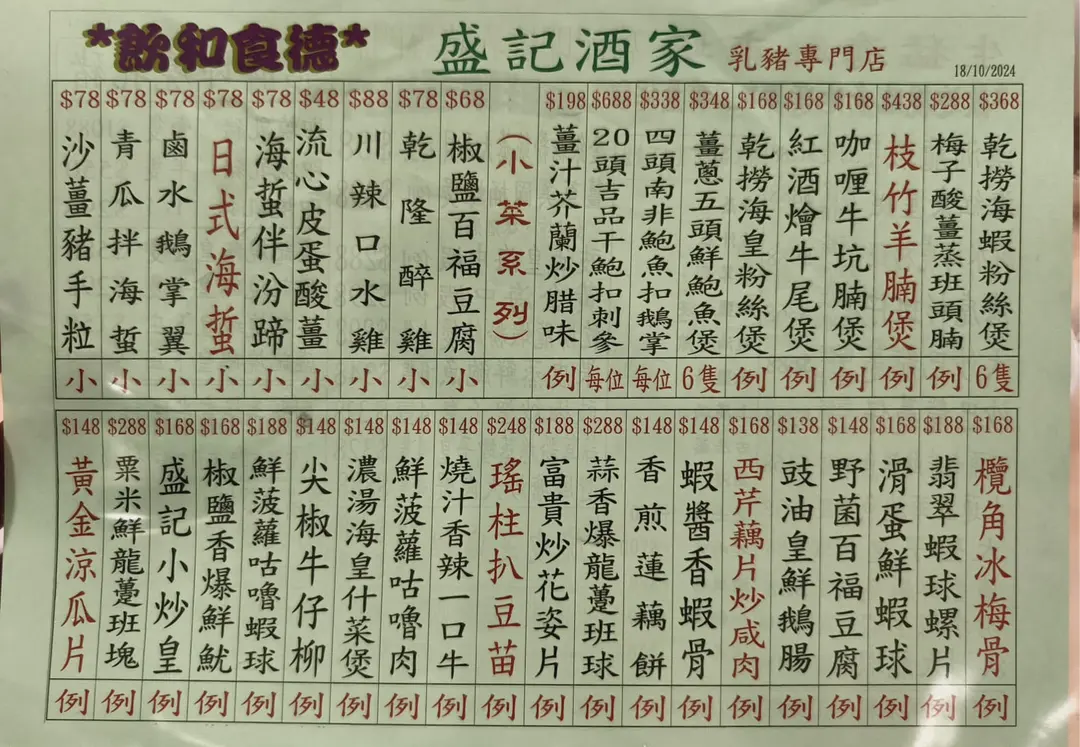 *飲和食德* 盛記酒家 乳豬專門店 18/10/2024
$368 乾撈海蝦粉絲煲 6隻
$288 梅子酸薑蒸班頭腩 例
$438 枝竹羊腩煲 例
$168 咖喱牛坑腩煲 例
$168 紅酒燴牛尾煲 例
$168 乾撈海皇粉絲煲 例
$348 薑蔥五頭鮮鮑魚煲 6隻
$338 四頭南非鮑魚扣鵝掌 每位
$688 20頭吉品干鮑扣刺參 每位
$198 薑汁芥蘭炒腊味 例
（小菜系列）
$68 椒鹽百福豆腐 小
$78 乾隆醉雞 小
$88 川辣口水雞 小
$48 流心皮蛋酸薑 小
$78 海蜇伴汾蹄 小
$78 日式海蜇 小
$78 鹵水鵝掌翼 小
$78 青瓜拌海蜇 小
$78 沙薑豬手粒 小
$168 欖角冰梅骨 例
$188 翡翠蝦球螺片 例
$168 滑蛋鮮蝦球 例
$148 野菌百福豆腐 例
$138 豉油皇鮮鵝腸 例
$168 西芹藕片炒咸肉 例
$148 蝦醬香蝦骨 例
$148 香煎蓮藕餅 例
$288 蒜香爆龍躉班球 例
$188 富貴炒花姿片 例
$248 瑤柱扒豆苗 例
$148 燒汁香辣一口牛 例
$148 鮮菠蘿咕嚕肉 例
$148 濃湯海皇什菜煲 例
$148 尖椒牛仔柳 例
$188 鮮菠蘿咕嚕蝦球 例
$168 椒鹽香爆鮮魷 例
$168 盛記小炒皇 例
$288 粟米鮮龍躉班塊 例
$148 黃金涼瓜片 例